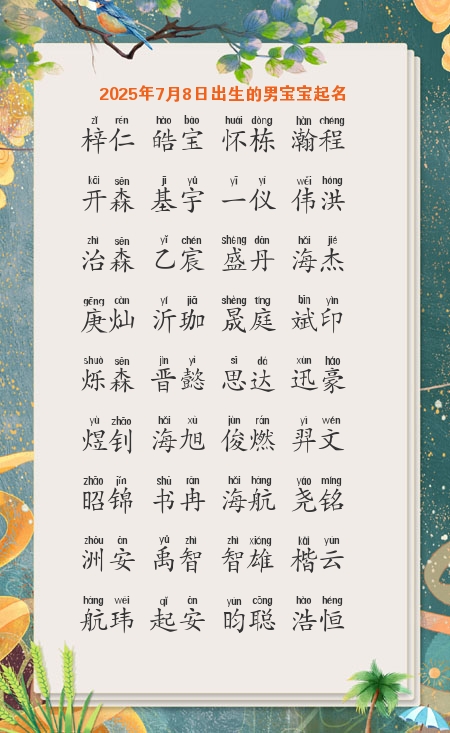 2025年7月8日出生的男宝宝起名
zǐ rén hào bǎo huái dòng hàn chéng
梓仁 皓宝 怀栋 瀚程
kāi sēn jī yǔ yī yí wěi hóng
开森 基宇 一仪 伟洪
zhì sēn yǐ chén shèng dān hǎi jié
治森 乙宸 盛丹 海杰
gēng càn yí jiā shèng tíng bīn yìn
庚灿 沂珈 晟庭 斌印
shuò sēn jìn yì sī dá xùn háo
烁森 晋懿 思达 迅豪
yù zhāo hǎi xù jùn rán yì wén
煜钊 海旭 俊燃 羿文
zhāo jǐn shū rǎn hǎi háng yáo míng
昭锦 书冉 海航 尧铭
zhōu ān yǔ zhì zhì xióng kǎi yún
洲安 禹智 智雄 楷云
háng wěi qǐ ān yún cōng hào héng
航玮 起安 昀聪 浩恒